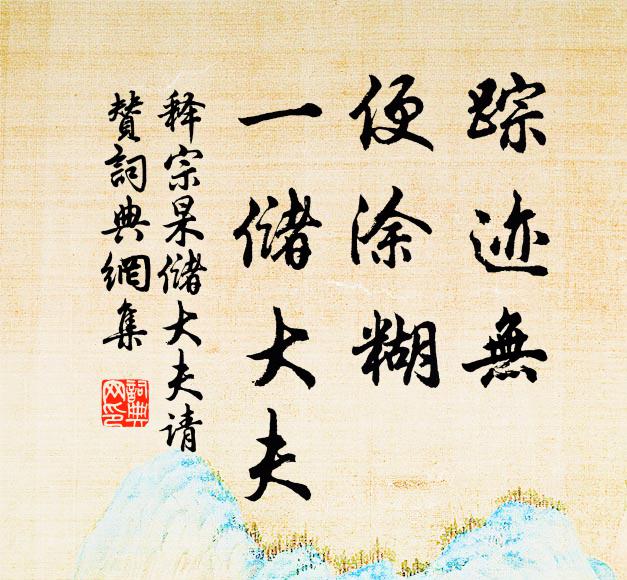 踪迹無
便涂糊
一储大夫
释宗杲储大夫请
赞詞典網集
詞典网印